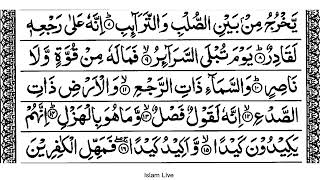 يَّخْرُجُ مِنْۢ بَيْنِ الصُّلْبِ وَالتَّرَآئِبِ ۝۷ اِنَّهٗ عَلٰى رَجْعِهٖ
لَقَادِرٌ ۝۸ يَوْمَ تُبْلَى السَّرَآئِرُ ۝۹ فَمَالَهٗ مِنْ قُوَّةٍ وَّلَا
نَاصِرٍ ۝۱۰ وَالسَّمَآءِ ذَاتِ الرَّجْعِ ۝۱۱ وَالْاَرْضِ ذَاتِ
الصَّدْعِ ۝۱۲ اِنَّهٗ لَقَوْلٌ فَصْلٌ ۝۱۳ وَّمَاهُوَ بِالْهَزْلِ ۝۱۴ اِنَّهُمْ
يَكِيْدُوْنَ كَيْدًا ۝۱۵ وَّاَكِيْدُ كَيْدًا ۝۱۶ فَمَهِّلِ الْكٰفِرِيْنَ
Islam Live